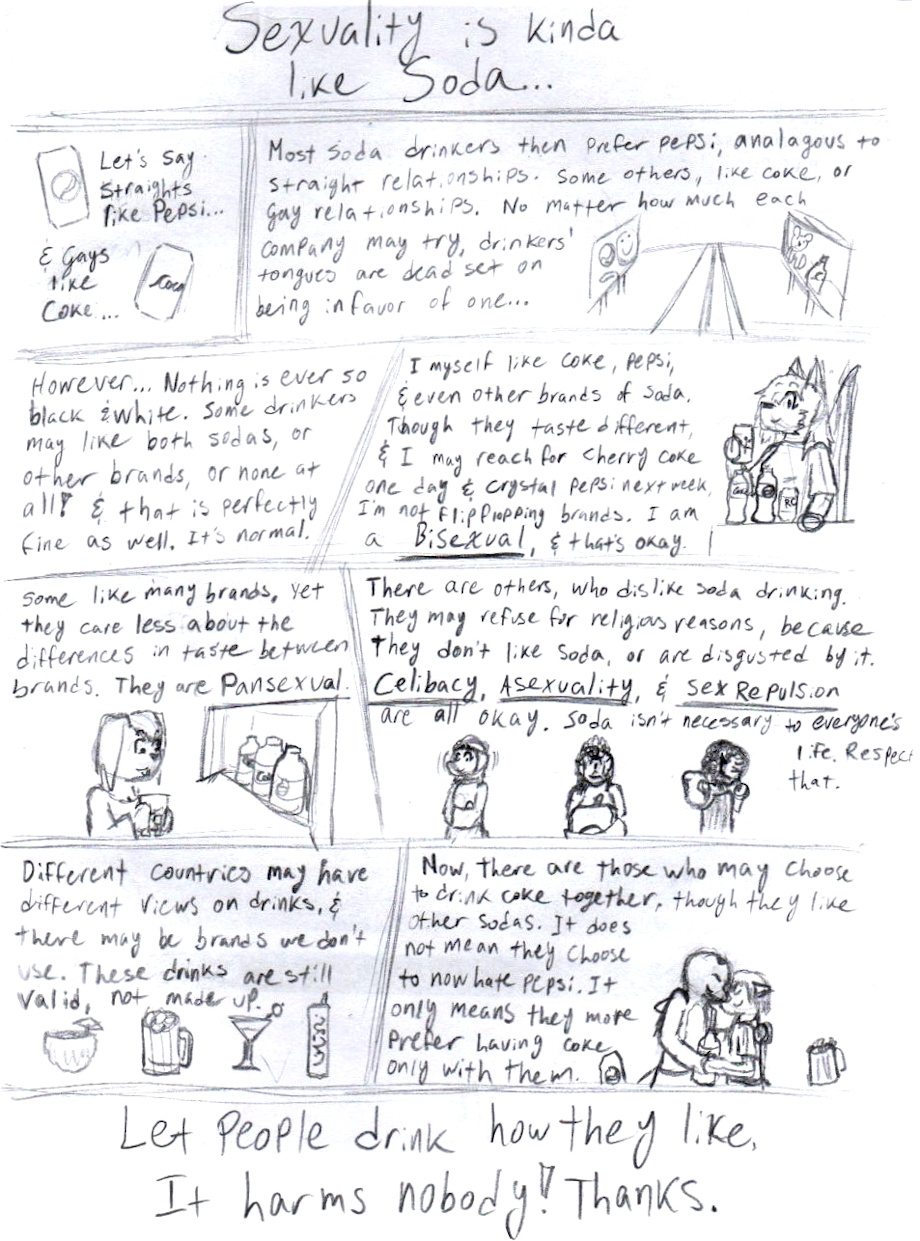 Sexuality is kinda
like Soda...
Let's say
straights
like Pepsi...
& Gays
like
Coke...
Coca
Most soda drinkers then prefer pepsi, analagous to
straight relationships. Some others, like coke, or
gay relationships. No matter how much each
company may try, drinkers'
tongues are dead set on
being in favor of one...
However... Nothing is ever so
black & white. Some drinkers
may like both sodas, or
other brands, or none at
all! & that is perfectly
fine as well. It's normal.
I myself like coke, pepsi,
& even other brands of soda.
Though they taste different,
& I may reach for cherry coke
one day & crystal pepsi next week,
I'm not flipflopping brands. I am
a Bisexual, & that's okay.
RC
Some like many brands, yet
they care less about the
differences in taste between
brands. They are Pansexual.
There are others, who dislike soda drinking.
They may refuse for religious reasons, because
they don't like soda, or are disgusted by it.
Celibacy, Asexuality, & Sex Repulsion
are all okay. Soda isn't necessary to everyone's
life. Respect
that.
Different countries may have
different views on drinks, &
there may be brands we don't
use. These drinks are still
valid, not made up.
Now, there are those who may choose
to drink coke together, though they like
other sodas. It does
not mean they choose
to now hate pepsi. It
only means they more
prefer having coke
only with them.
Let people drink how they like.
It harms nobody! Thanks.